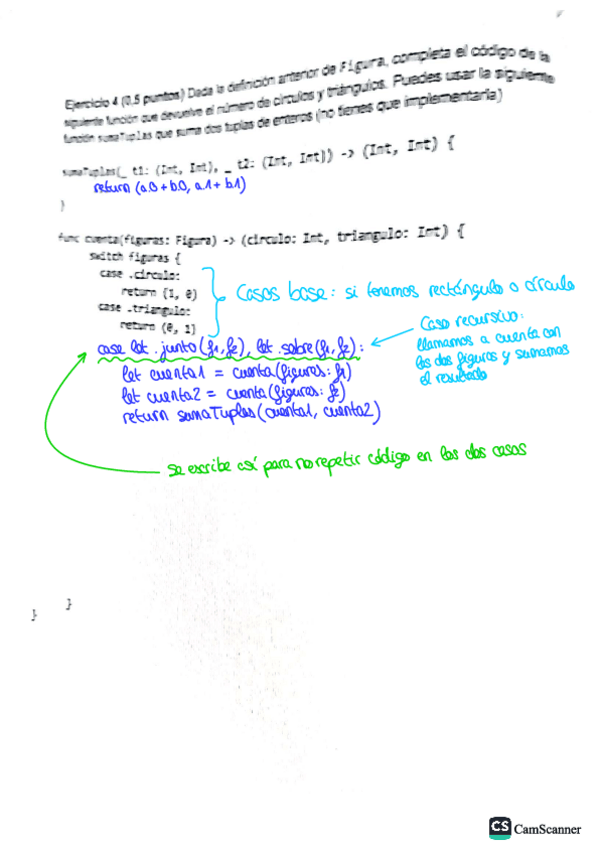 Ejercicio 4 (0,5 puntos) Dada la definición anterior de Figura, completa el código de la
siguiente función que devuelve el número de círculos y triángulos. Puedes usar la siguiente
función sumaTuplas que suma dos tuplas de enteros (no tienes que implementarla)
sumaTuplas(_ t1: (Int, Int), _ t2: (Int, Int)) -> (Int, Int) {
return (a.0 + b.0, a.1 + b.1)
}
func cuenta(figuras: Figura) -> (circulo: Int, triangulo: Int) {
switch figuras {
case .circulo:
return (1, 0)
case .triangulo:
return (0, 1)
Casos base: si tenemos rectángulo o círculo
case let .junto(f1, f2), let .sobre(f1, f2):
let cuenta1 = cuenta(figuras: f1)
let cuenta2 = cuenta(figuras: f2)
return sumaTuplas(cuenta1, cuenta2)
Caso recursivo:
llamamos a cuenta con
las dos figuras y sumamos
el resultado
se escribe así para no repetir código en los dos casos
}
}
CS CamScanner